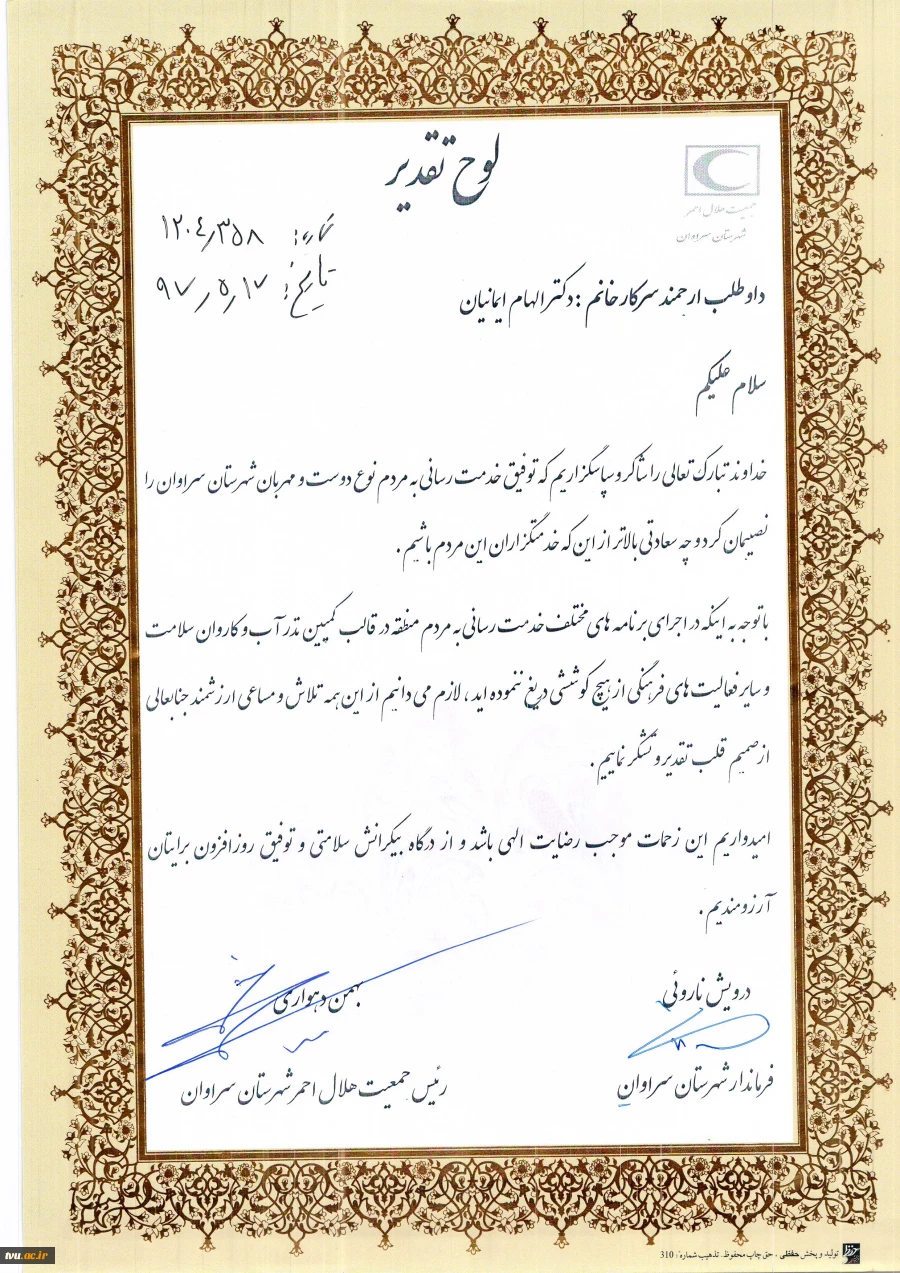 لوح تقدیر
جمعیت هلال احمر
شهرستان سراوان
شماره: ۱۲۰۴٫۳۵۸
تاریخ: ۹۷٫۵٫۱۷
داوطلب ارجمند سرکار خانم : دکتر الهام ایمانیان
سلام علیکم
خداوند تبارک تعالی را شاکر و سپاسگزاریم که توفیق خدمت رسانی به مردم نوع دوست و مهربان شهرستان سراوان را
نصیبمان کرد و چه سعادتی بالاتر از این که خدمتگزاران این مردم باشیم .
باتوجه به اینکه در اجرای برنامه های مختلف خدمت رسانی به مردم منطقه در قالب کمپین نذر آب و کاروان سلامت
و سایر فعالیت های فرهنگی از هیچ کوششی دریغ ننموده اید ، لازم می دانیم از این همه تلاش و مساعی ارزشمند جنابعالی
از صمیم قلب تقدیر و تشکر نماییم .
امیدواریم این زحمات موجب رضایت الهی باشد و از درگاه بیکرانش سلامتی و توفیق روزافزون برایتان
آرزومندیم .
درویش ناروئی
بهمن دهواری
فرماندار شهرستان سراوان
رئیس جمعیت هلال احمر شهرستان سراوان
تولید و پخش حفظی ، حق چاپ محفوظ . تذهیب شماره : 310
tvu.ac.ir